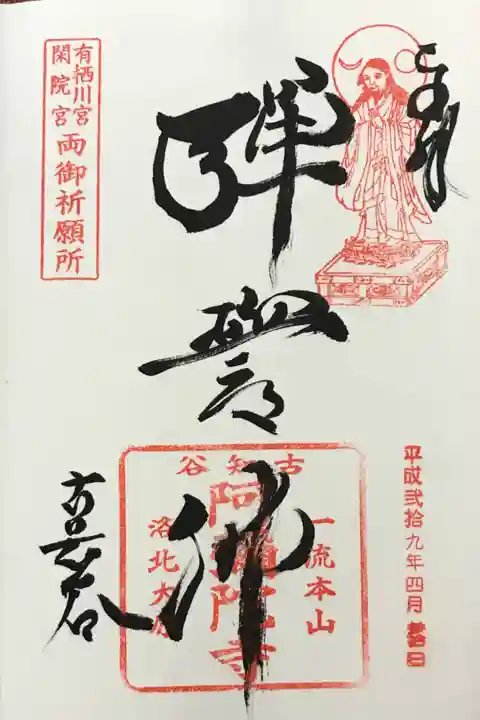 奉拝
平成弐拾九年四月
彈誓佛
古知谷
一流本山
阿彌陀寺
洛北大原
古知谷
有栖川宮
閑院宮
両御祈願所